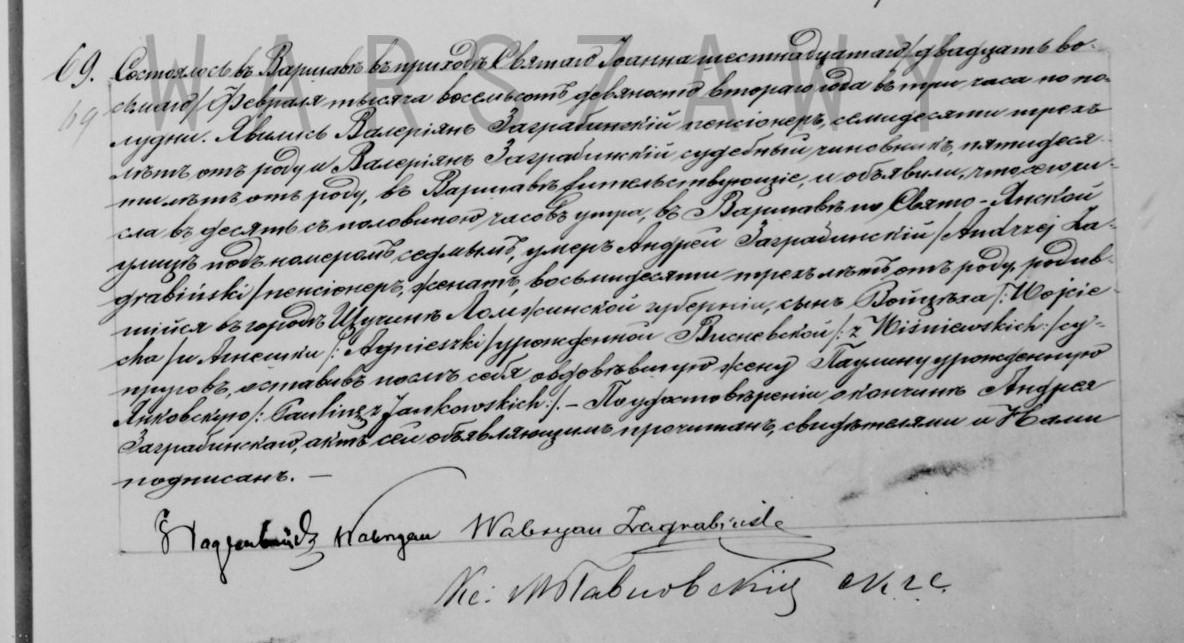 WARSZAWY
69. Состоялось въ Варшавѣ въ приходѣ Святаго Іоанна шестнадцатаго /двадцать во-
69 сьмаго/ Февраля тысяча восемьсотъ девяносто втораго года въ три часа по по-
лудни. Явились Валеріянъ Заграбинскій пенсіонеръ, семидесяти трехъ
лѣтъ отъ роду и Валеріянъ Заграбинскій судебный чиновникъ, пятидеся-
ти лѣтъ отъ роду, въ Варшавѣ жительствующіе, и объявили, что
сла въ десять съ половиною часовъ утра, въ Варшавѣ по Свято-Янской
улицѣ подъ номеромъ седьмымъ, умеръ Андрей Заграбинскій /Andrzej Za-
grabiński/ пенсіонеръ, женатъ, восьмидесяти трехъ лѣтъ отъ роду, родив-
шійся въ городѣ Щучинѣ Ломжинской губерніи, сынъ Войцѣха /:Wojcie-
cha/ и Агнешки /:Agnieszki/ урожденной Висневской /:z Wiśniewskich:/ су-
пруговъ, оставивъ послѣ себя овдовѣвшую жену Паулину урожденную
Янковскую /:Paulinę z Jankowskich:/. – По удостовѣреніи о кончинѣ Андрея
Заграбинскаго, актъ сей объявляющимъ прочитанъ, свидѣтелями и Нами
подписанъ. –
Waleryan Waleryan Zagrabiński
Кс: